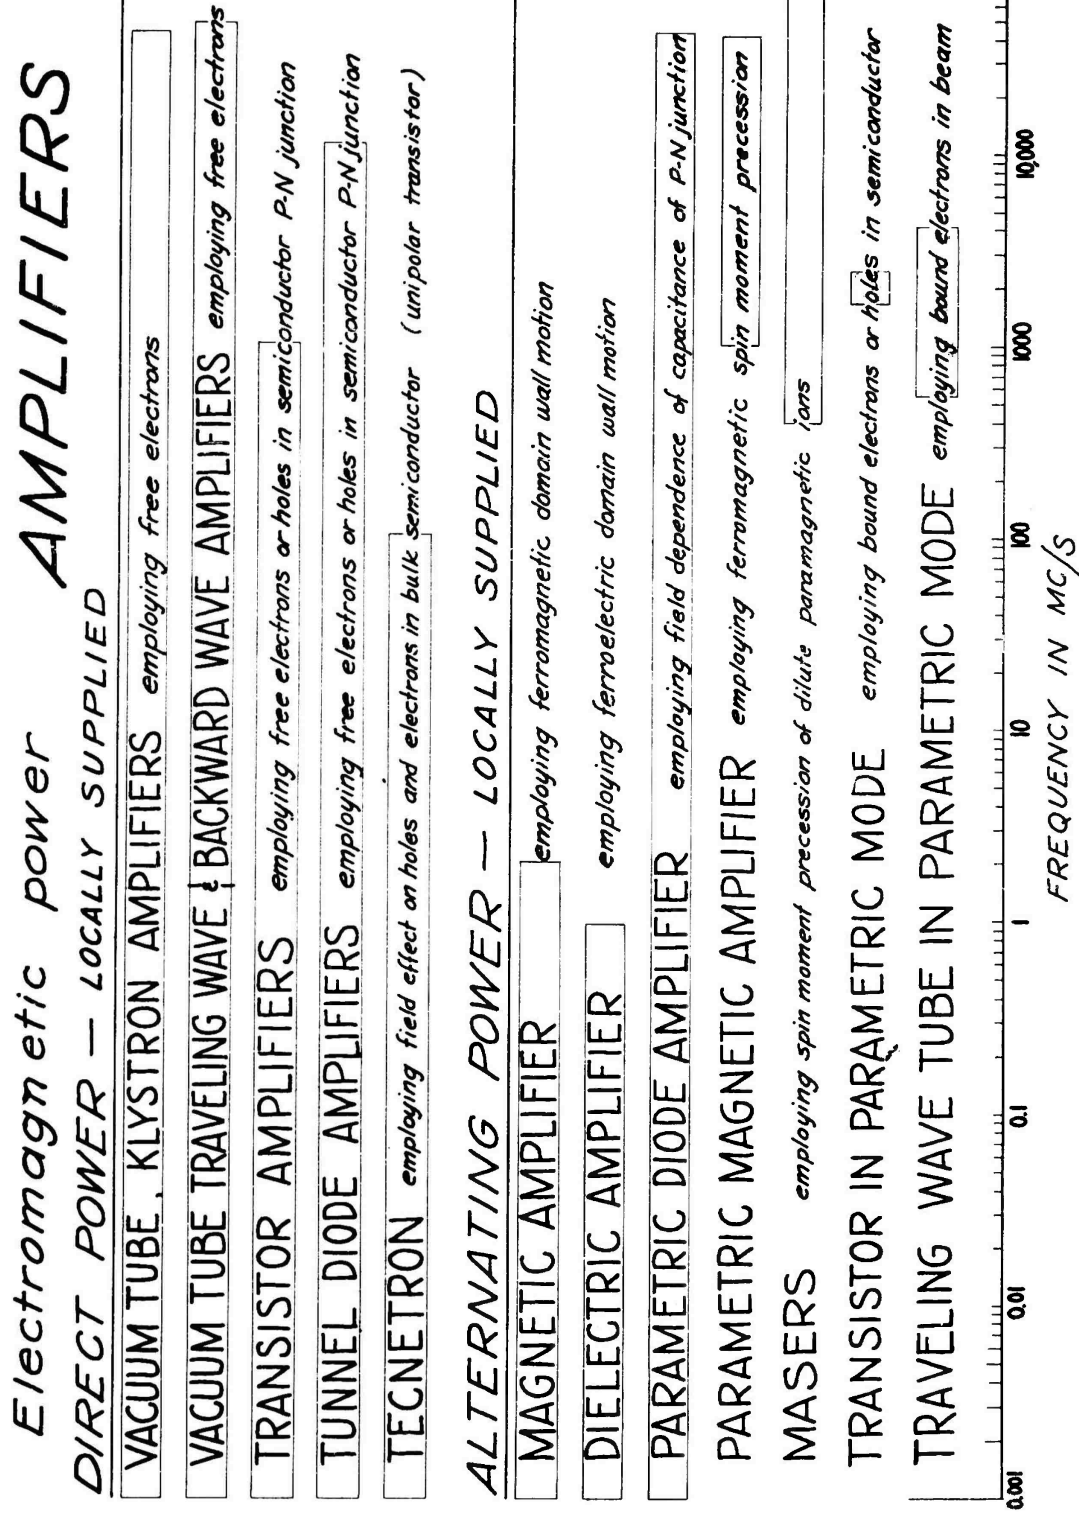 AMPLIFIERS
Electromagnetic power
DIRECT POWER — LOCALLY SUPPLIED
VACUUM TUBE, KLYSTRON AMPLIFIERS employing free electrons
VACUUM TUBE TRAVELING WAVE & BACKWARD WAVE AMPLIFIERS employing free electrons
TRANSISTOR AMPLIFIERS employing free electrons or holes in semiconductor P-N junction
TUNNEL DIODE AMPLIFIERS employing free electrons or holes in semiconductor P-N junction
TECNETRON employing field effect on holes and electrons in bulk semiconductor (unipolar transistor)
ALTERNATING POWER — LOCALLY SUPPLIED
MAGNETIC AMPLIFIER employing ferromagnetic domain wall motion
DIELECTRIC AMPLIFIER employing ferroelectric domain wall motion
PARAMETRIC DIODE AMPLIFIER employing field dependence of capacitance of P-N junction
PARAMETRIC MAGNETIC AMPLIFIER employing ferromagnetic spin moment precession
MASERS employing spin moment precession of dilute paramagnetic ions
TRANSISTOR IN PARAMETRIC MODE employing bound electrons or holes in semiconductor
TRAVELING WAVE TUBE IN PARAMETRIC MODE employing bound electrons in beam
0.001 0.01 0.1 1 10 100 1000 10,000
FREQUENCY IN MC/S